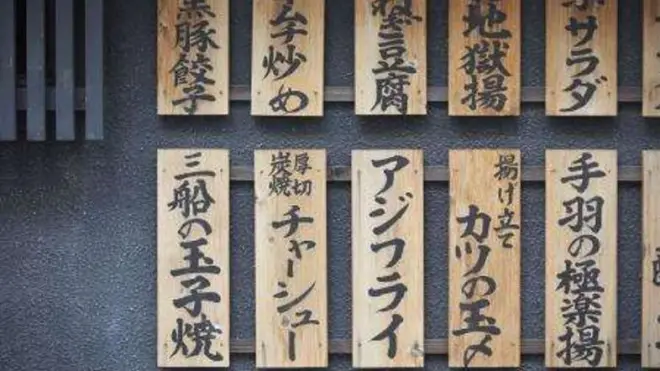 サラダ
地獄揚
豆腐
ムチ炒め
黒豚餃子
手羽の極楽揚
揚げ立て
カツの玉〆
アジフライ
厚切
炭焼
チャーシュー
三船の玉子焼